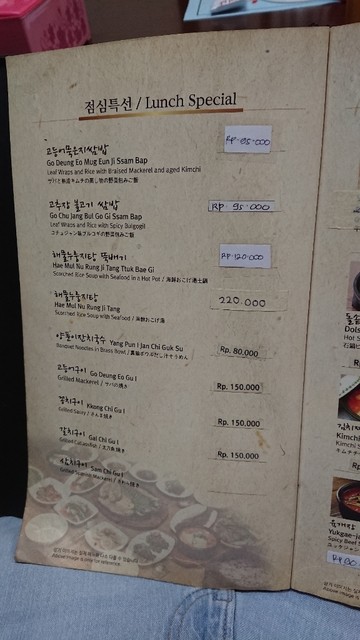 점심특선 / Lunch Special
고등어묵은지쌈밥
Go Deung Eo Mug Eun Ji Ssam Bap
Leaf Wraps and Rice with Braised Mackerel and aged Kimchi
RP. 95.000
고추장 불고기 쌈밥
Go Chu Jang Bul Go Gi Ssam Bap
Leaf Wraps and Rice with Spicy Bulgogi
コチュジャン味プルコギの野菜包みご飯
RP. 95.000
해물누룽지탕 뚝배기
Hae Mul Nu Rung Ji Tang Ttuk Bae Gi
Scorched Rice with Seafood in a Hot Pot /
RP. 120.000
해물누룽지탕
Hae Mul Nu Rung Ji Tang
Scorched Rice with Seafood / 海鮮おこげ湯
220.000
양푼이잔치국수 Yang Pun I Jan Chi Guk Su
Banquet Noodles in Brass Bowl /
Rp. 80.000
고등어구이 Go Deung Eo Gu I
Grilled Mackerel / サバの焼き
Rp. 150.000
꽁치구이 Kkong Chi Gu I
Grilled Saury / さんま焼き
Rp. 150.000
갈치구이 Gal Chi Gu I
Grilled Cutlassfish / 太刀魚焼き
Rp. 150.000
삼치구이 Sam Chi Gu I
Grilled Spanish Mackerel / さわら焼き
Above image is only for reference.
Dols
Hot S
Kimchi
Kimchi
キムチチ
육개장
Yukgae-ja
Spicy Beef
ユッケジャン